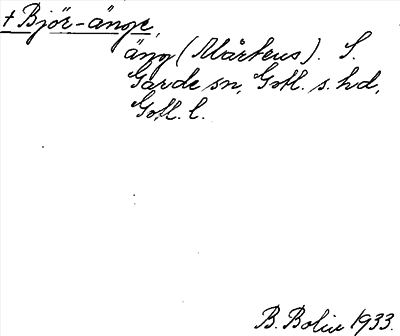 + Björ-änge,
äng (Mårtens). S.
Garde sn, Gotl. s. hd,
Gotl. l.
B. Bolin 1933.